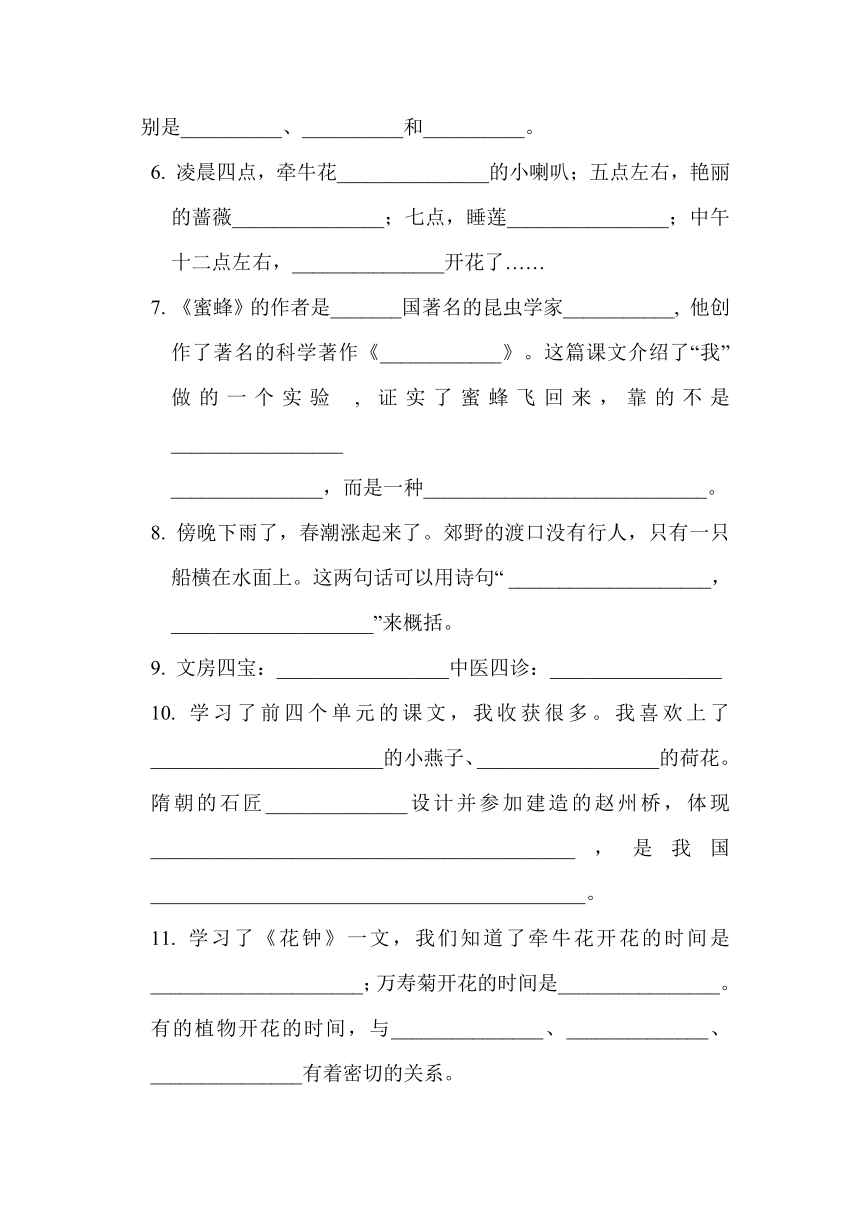 别是__________、__________和__________。
6. 凌晨四点，牵牛花_______________的小喇叭；五点左右，艳丽
的蔷薇_______________；七点，睡莲________________；中午
十二点左右，_______________开花了……
7. 《蜜蜂》的作者是_______国著名的昆虫学家___________, 他创
作了著名的科学著作《____________》。这篇课文介绍了“我”
做的一个实验 , 证实了蜜蜂飞回来，靠的不是
_________________
_______________，而是一种____________________________。
8. 傍晚下雨了，春潮涨起来了。郊野的渡口没有行人，只有一只
船横在水面上。这两句话可以用诗句“ ____________________，
____________________”来概括。
9. 文房四宝：_________________中医四诊：_________________
10. 学习了前四个单元的课文，我收获很多。我喜欢上了
_______________________的小燕子、__________________的荷花。
隋朝的石匠______________设计并参加建造的赵州桥，体现
__________________________________________，是我国
___________________________________________。
11. 学习了《花钟》一文，我们知道了牵牛花开花的时间是
_____________________；万寿菊开花的时间是________________。
有的植物开花的时间，与_______________、______________、
_______________有着密切的关系。